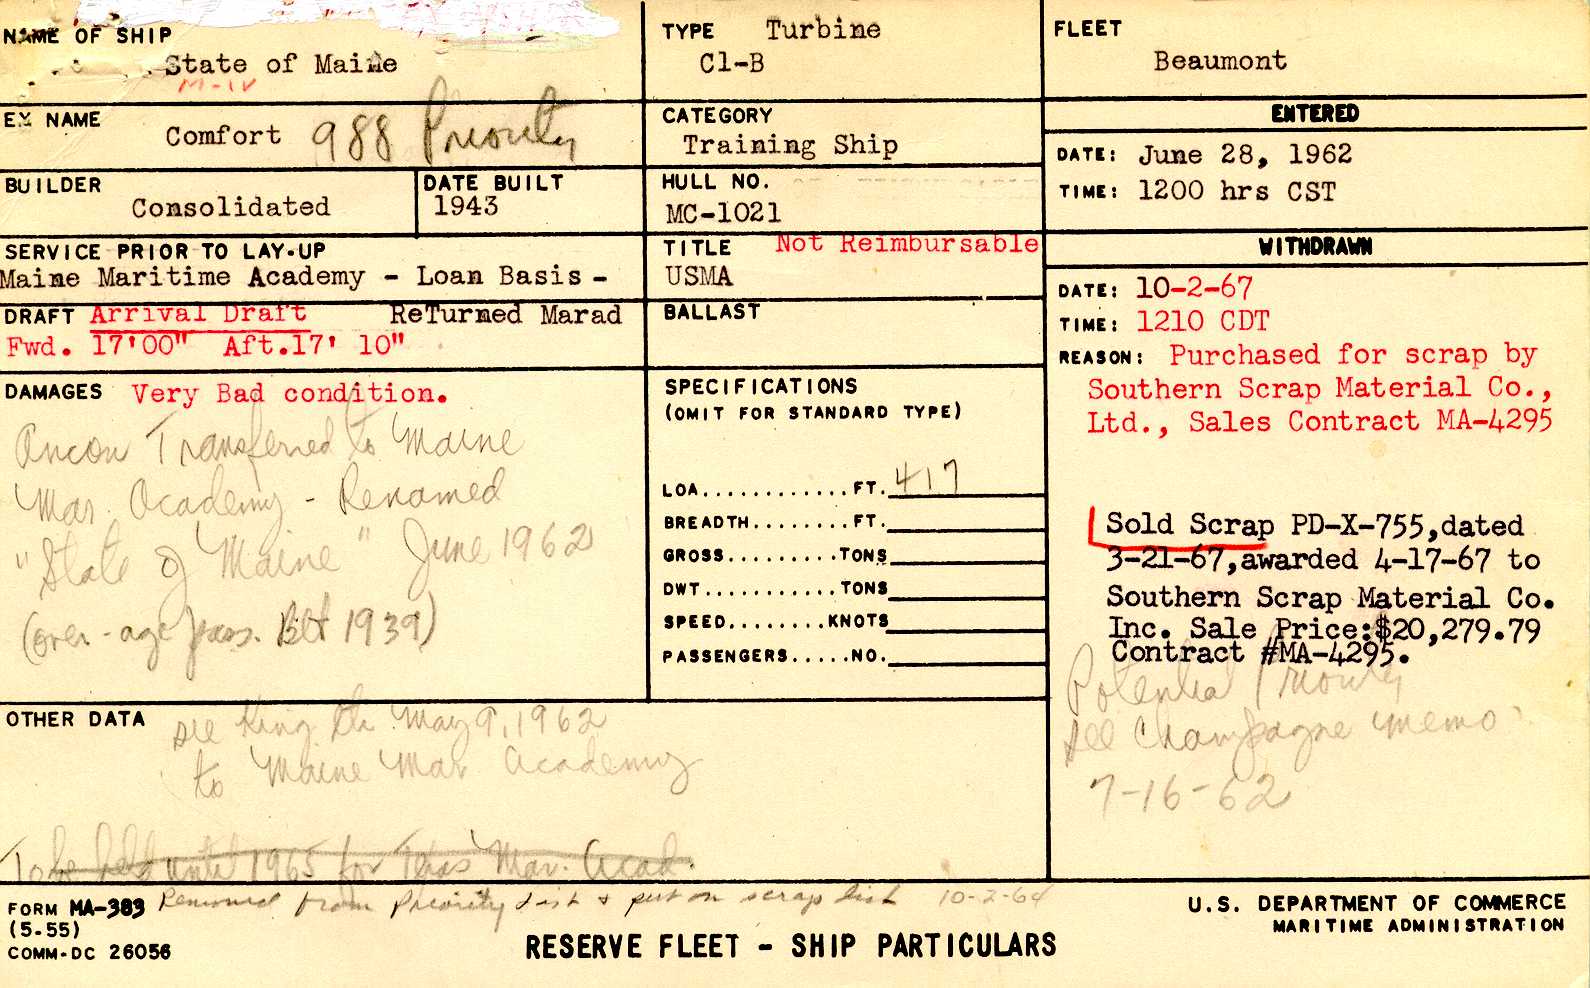 NAME OF SHIP
State of Maine
M-IV
EX NAME
Comfort 988 Priority
BUILDER
Consolidated
DATE BUILT
1943
SERVICE PRIOR TO LAY-UP
Maine Maritime Academy - Loan Basis -
DRAFT Arrival Draft ReTurned Marad
Fwd. 17'00" Aft.17' 10"
DAMAGES Very Bad condition.
Ancon Transferred to Maine
Mar. Academy - Renamed
"State of Maine" June 1962
(over-age pass. Blt 1939)
TYPE Turbine
C1-B
CATEGORY
Training Ship
HULL NO.
MC-1021
TITLE Not Reimbursable
USMA
BALLAST
SPECIFICATIONS
(OMIT FOR STANDARD TYPE)
LOA.............FT. 417
BREADTH........FT.
GROSS.........TONS
DWT...........TONS
SPEED........KNOTS
PASSENGERS.....NO.
FLEET
Beaumont
ENTERED
DATE: June 28, 1962
TIME: 1200 hrs CST
WITHDRAWN
DATE: 10-2-67
TIME: 1210 CDT
REASON: Purchased for scrap by
Southern Scrap Material Co.,
Ltd., Sales Contract MA-4295
Sold Scrap PD-X-755,dated
3-21-67,awarded 4-17-67 to
Southern Scrap Material Co.
Inc. Sale Price:$20,279.79
Contract #MA-4295.
Potential Priority
see Champagne memo
7-16-62
OTHER DATA
see King ltr. May 9, 1962
to Maine Mar Academy
To be held until 1965 for Texas Mar. Acad.
FORM MA-383 Removed from Priority list & put on scrap list 10-2-64
(5-55)
COMM-DC 26056
RESERVE FLEET - SHIP PARTICULARS
U.S. DEPARTMENT OF COMMERCE
MARITIME ADMINISTRATION